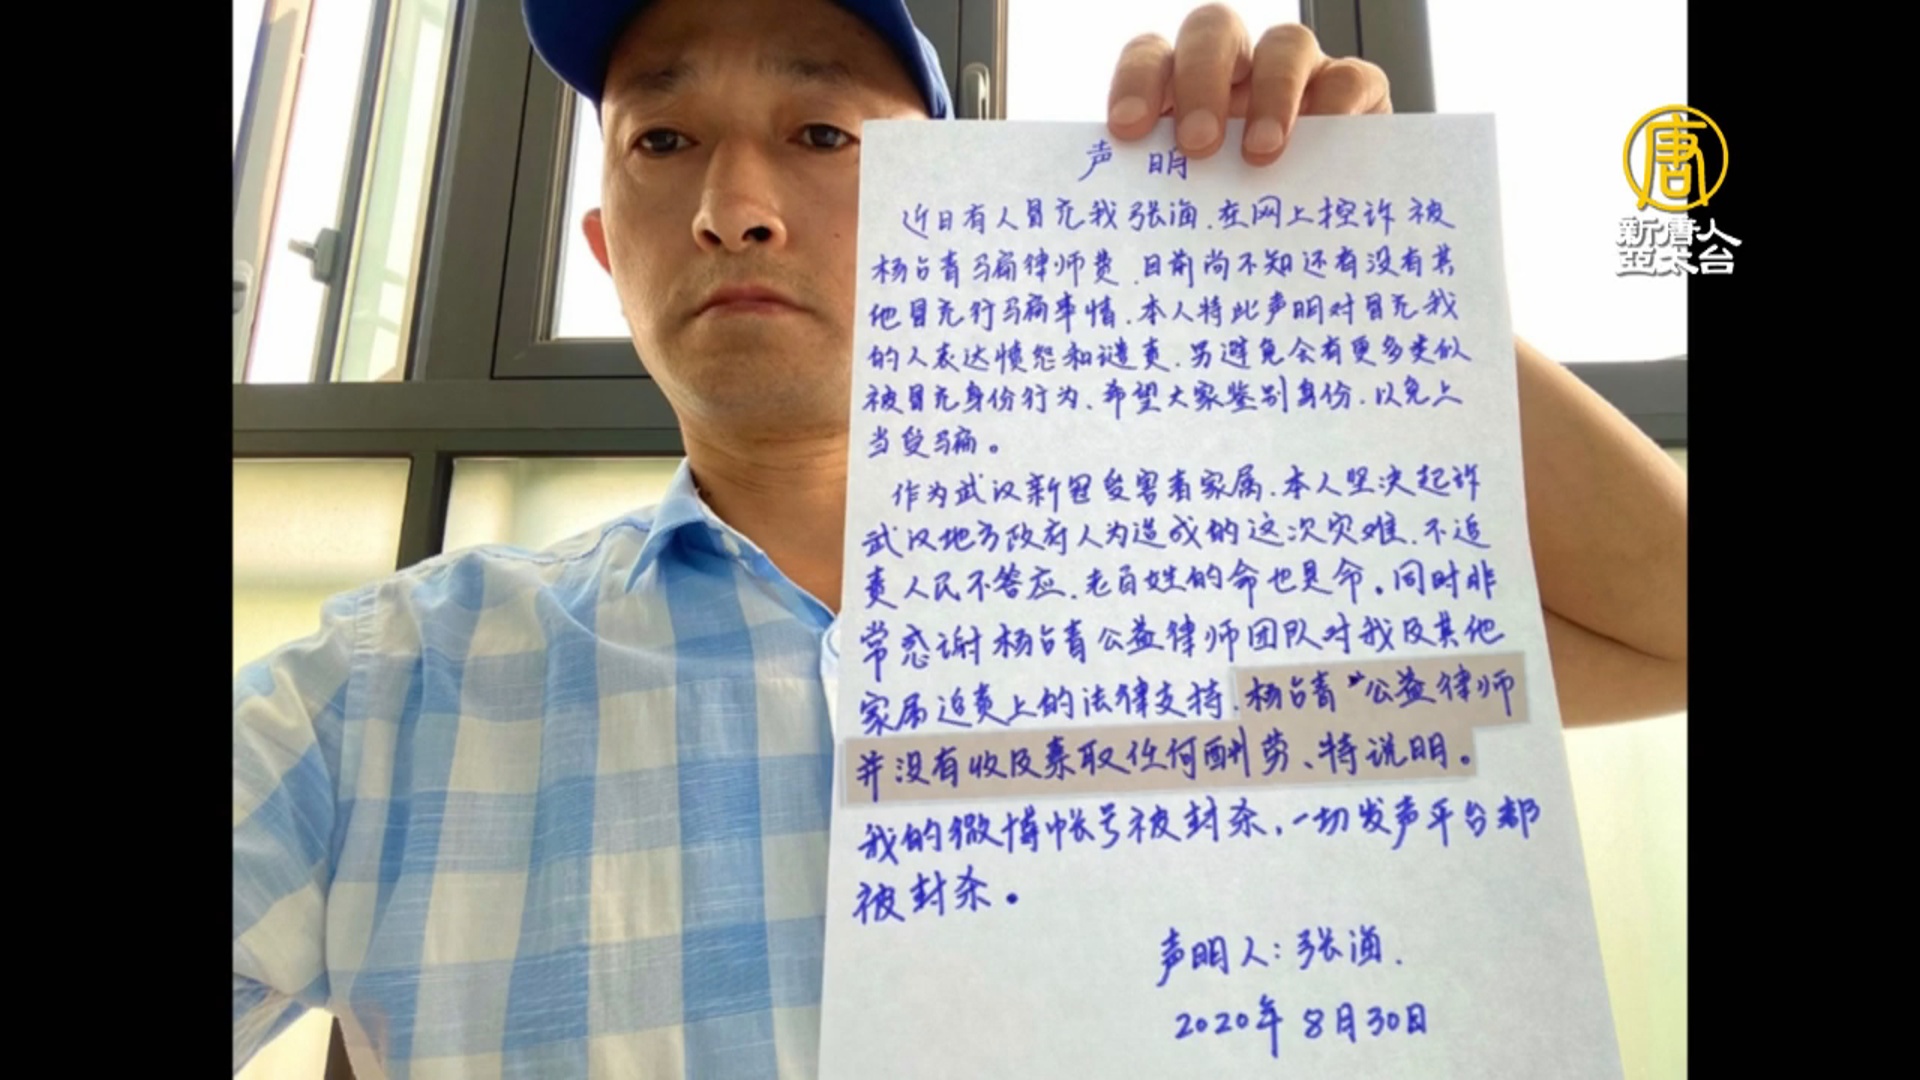 声 明
近日有人冒充我张海.在网上控诉被
杨占青骗律师费.目前尚不知还有没有其
他冒充行骗事情.本人特此声明对冒充我
的人表达愤怒和谴责.另避免会有更多类似
被冒充身份行为.希望大家鉴别身份.以免上
当受骗。
作为武汉新冠受害者家属.本人坚决起诉
武汉地方政府人为造成的这次灾难.不追
责人民不答应.老百姓的命也是命。同时非
常感谢杨占青公益律师团队对我及其他
家属追责上的法律支持.杨占青"公益律师
并没有收及募取任何酬劳、特说明。
我的微博帐号被封杀.一切发声平台都
被封杀。
声明人:张海.
2020年8月30日
唐
新唐人
亞太台